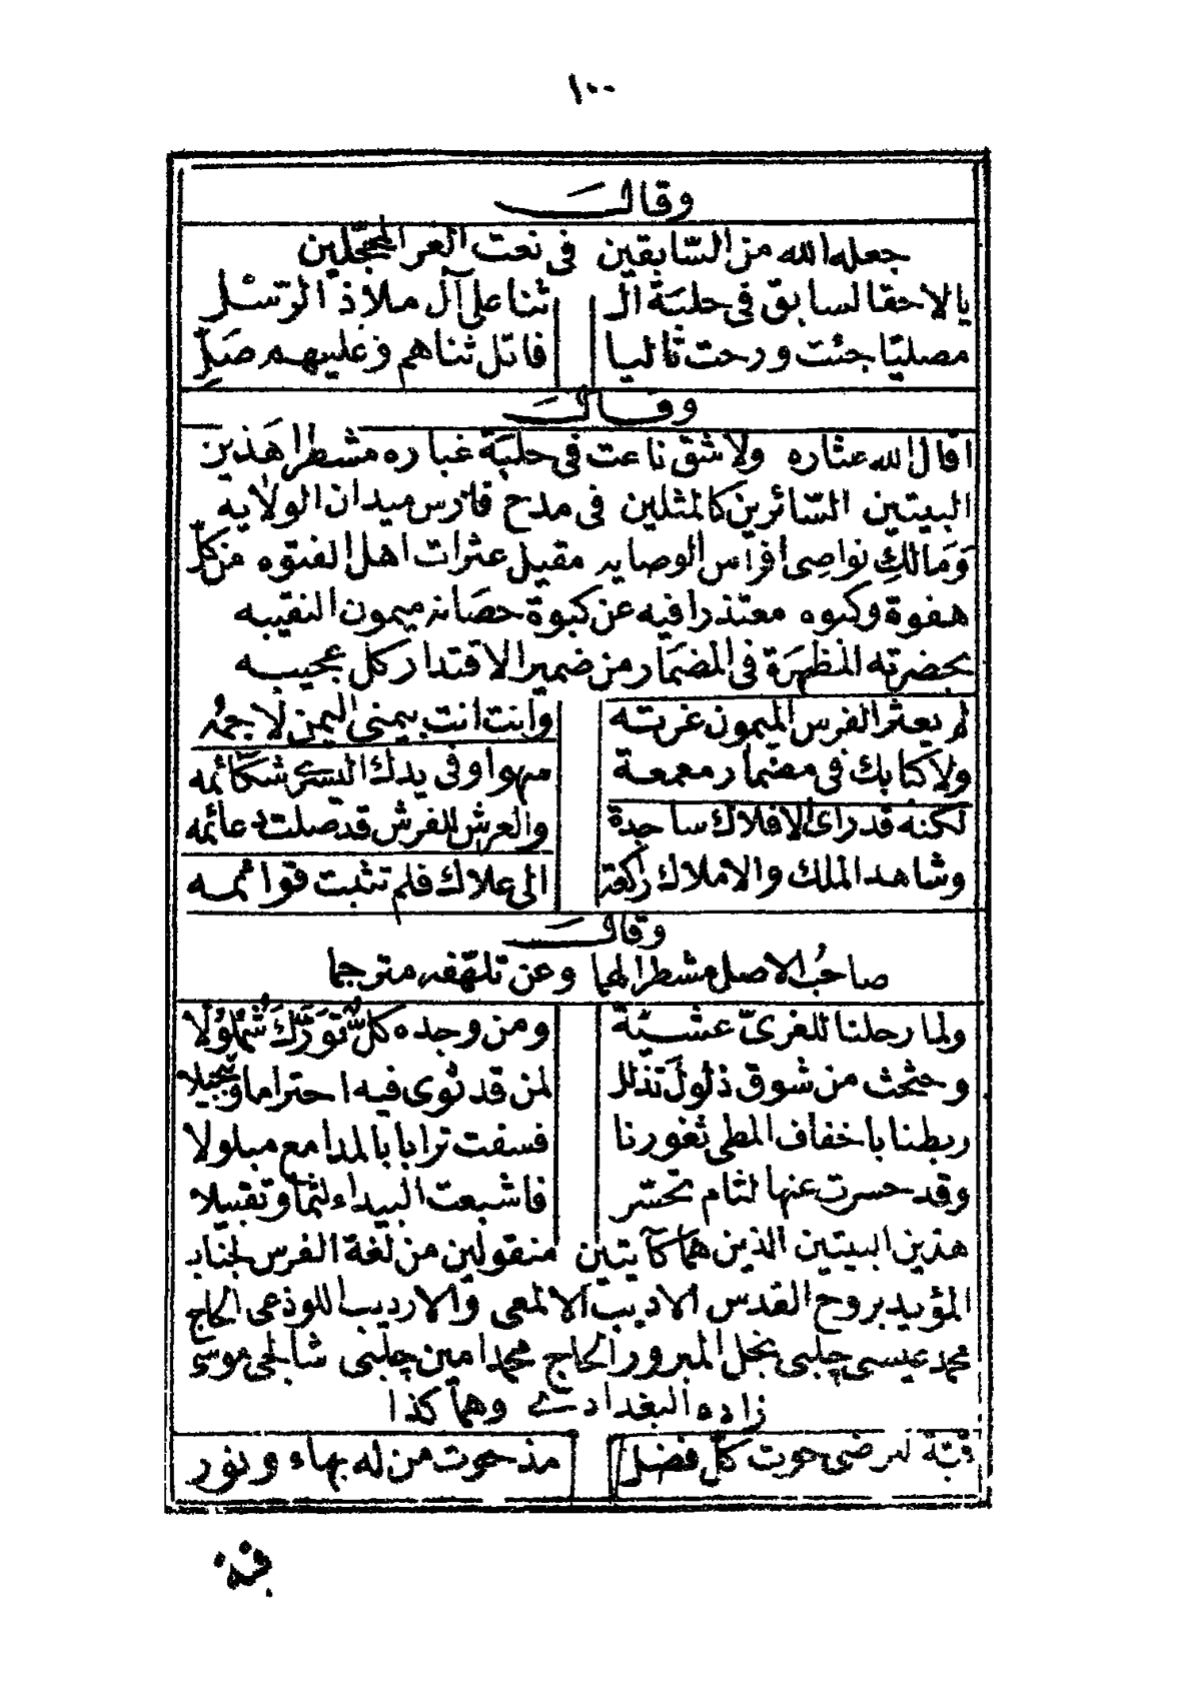 ١٠٠
وقال
جعله الله من السّابقين في نعت الغر المحجّلين
يا لاحقا لسابق في حلبة ال ثنا على آل ملاذ الرّسْل
مصليّا جئت ورحت تاليا فاتل ثناهم وعليهم صَلِّ
وقال
اقال الله عثاره ولا شق ناعت في حلبَة غباره مشطرا هَذين
البيتين السّائرين كالمثلين في مدح فارس ميدان الولايه
وَمَالكِ نواصِى افراس الوصايه مقيل عثرات اهل الفتوّه من كلّ
هفوة وكبوه معتذرا فيه عن كبوة حصَانه ميمون النقيبه
بحضرته المظهرَة في المضمَار من ضمير الاقتدار كل عجيبه
لم يعثر الفرس الميمون غرته وانت انت بيمنى اليمن لاجمُه
ولا كبا بك في مضمار معمعة مهوا وفي يدك اليسرى شكائمه
لكنه قد راى الافلاك ساجدة والعرش للفرش قد صلت دعائمه
وشاهد الملك والاملاك راكعة الى علاك فلم تثبت قوائمه
وقال
صاحبُ الاصل مشطرا لهما وعن تلهّفه مترجما
ولما رحلنا للغرىّ عشيّة ومن وجده كلٌّ تَوَرَّكَ شُملُولا
وحثحث من شوق ذلولَ تذَلل لمن قد ثوى فيه احتراما وتبجيلا
ربطنا باخفاف المطي ثغورنا فسفت ترابا بالمدامع مبلولا
وقد حسرت عنها لثام تحسّر فاشبعت البيداء لثما وتقبيلا
هذين البيتين الذين هما كآيتين منقولين من لغة الفرس لجناب
المؤيد بروح القدس الاديب الالمعى والاريب اللوذعى الحاج
محمد عيسى چلبى نجل المبرور الحاج محمد امين چلبى شالجى موسى
زاده البغدادى وهما كذا
قبّة لمرضى حوت كلّ فضل مذ حوت من له بهاء ونور